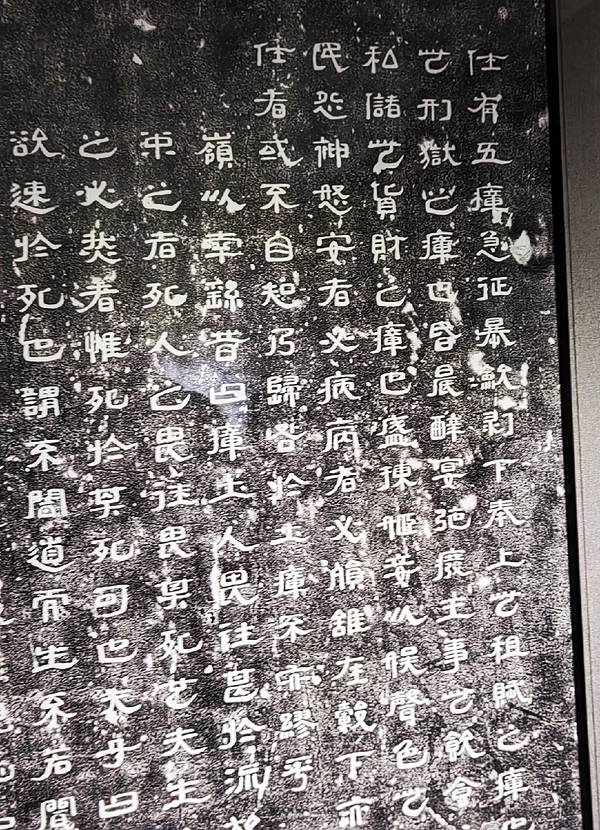 仕有五瘴急征暴歛剥下奉上此租賦之瘴
此刑獄之瘴也昏晨醉宴弛廢王事此飲食
私儲此貨財之瘴也盛揀姬妾以娛聲色此
民怨神怒安者必病病者必殞雖在轂下亦
仕者或不自知乃歸咎於土瘴不亦繆乎
嶺以南錄昔曰瘴土人畏往甚於流
中之者死人之畏往畏其死也夫生
之必者惟死於其死可也夫子曰
欲速於死也謂不聞道而生不若聞